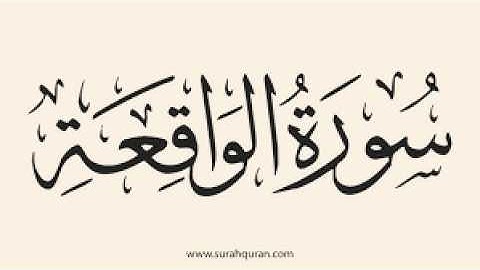 سُورَةُ الْوَاقِعَةِ
www.surahquran.com